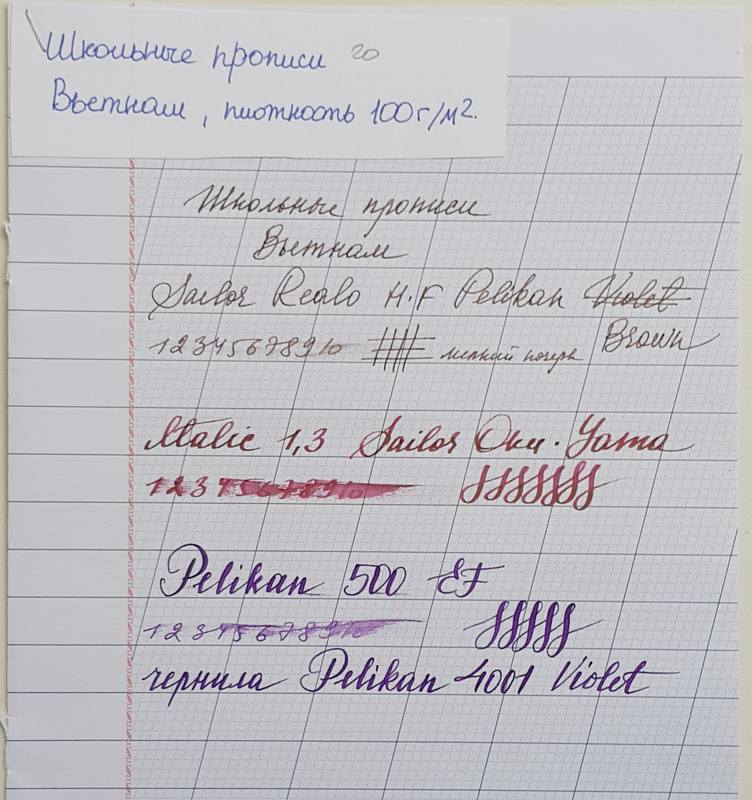 Школьные прописи 20
Вьетнам, плотность 100 г/м2.
Школьные прописи
Вьетнам
Sailor Realo H.F Pelikan Violet
12345678910 мелкий почерк Brown
Italic 1,3 Sailor Oku-Yama
12345678910
Pelikan 500 EF
12345678910
чернила Pelikan 4001 Violet